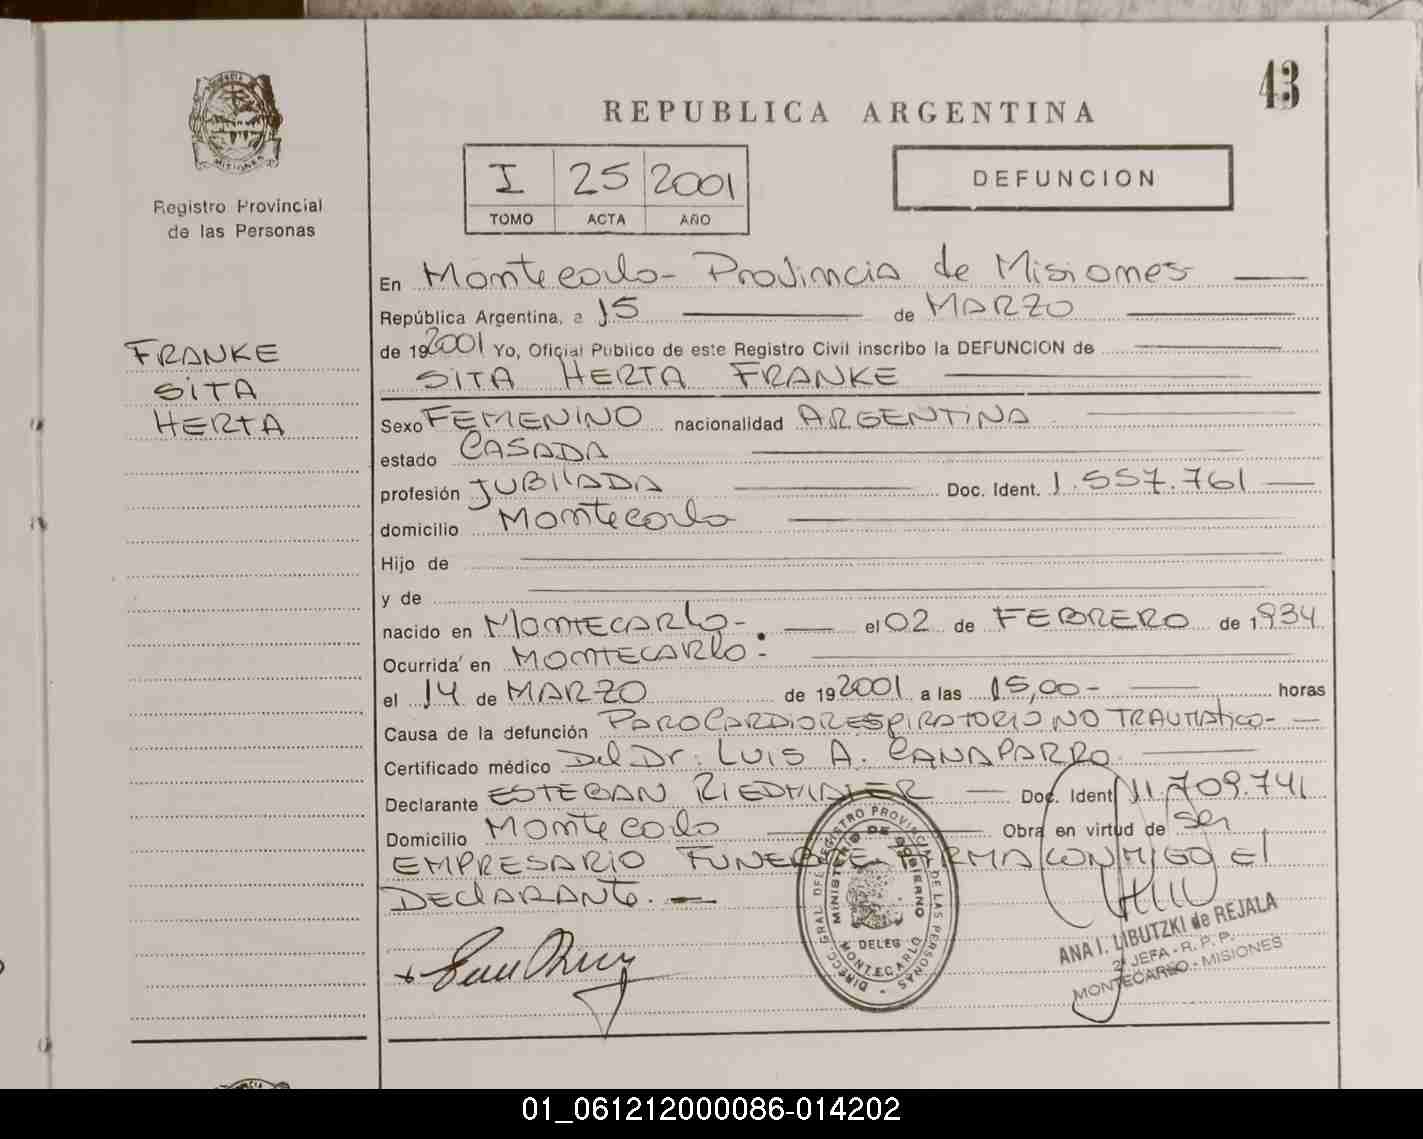 43
REPUBLICA ARGENTINA
I 25 2001
TOMO ACTA AÑO
DEFUNCION
MISIONES
Registro Provincial
de las Personas
FRANKE
SITA
HERTA
En Montecarlo - Provincia de Misiones
República Argentina, a 15 de MARZO
de 192001 Yo, Oficial Público de este Registro Civil inscribo la DEFUNCION de
SITA HERTA FRANKE
Sexo FEMENINO nacionalidad ARGENTINA
estado CASADA
profesión JUBILADA Doc. Ident. 1.557.761
domicilio Montecarlo
Hijo de
y de
nacido en MONTECARLO -. el 02 de FEBRERO de 1934
Ocurrida en MONTECARLO :
el 14 de MARZO de 192001 a las 15,00 - horas
Causa de la defunción PAROCARDIORESPIRATORIO NO TRAUMATICO -
Certificado médico Del Dr. LUIS A. CANAPARRO
Declarante ESTEBAN RIEDMAIER Doc. Ident 11.709.741
Domicilio Montecarlo Obra en virtud de Ser
EMPRESARIO FUNEBRE FIRMA CONMIGO El
DEClARANTE. -
DIRECC. GRAL. DEL REGISTRO PROVINCIAL DE LAS PERSONAS
MINISTERIO DE GOBIERNO
DELEG
MONTECARLO
ANA I. LIBUTZKI de REJALA
2ª JEFA - R. P. P.
MONTECARLO - MISIONES
01_061212000086-014202